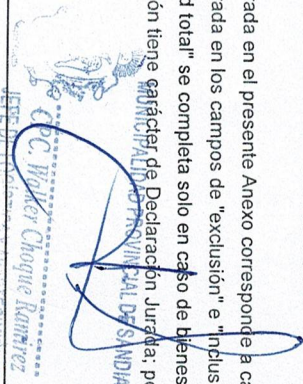 rada en el presente Anexo corresponde a ca
rada en los campos de "exclusión" e "inclus
d total" se completa solo en caso de bienes
ón tiene carácter de Declaración Jurada; po
MUNICIPALIDAD PROVINCIAL DE SANDIA
C.P.C. Walker Choque Ramirez